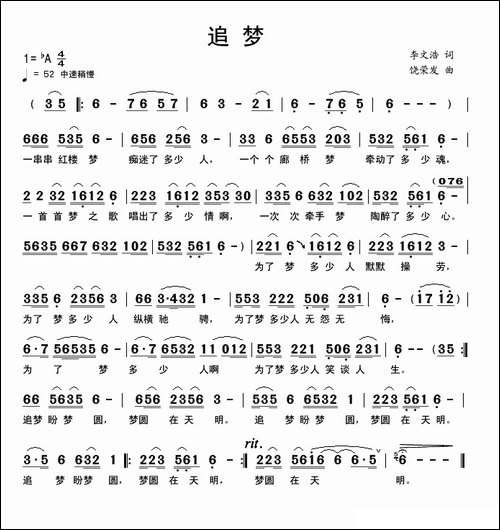 追 梦
1= ♭A 4/4
李文浩 词
♩ = 52 中速稍慢
饶荣发 曲
( 3 5 | 6 - 7 6 5 7 | 6 3 - 2 1 | 6 - 7 6 5 | 6 - - - )
6 6 6 5 3 5 6 - | 6 5 6 2 5 6 3 - | 3 3 6 6 5 5 3 2 0 3 | 5 3 2 5 6 1 6 - |
一串串 红楼 梦 痴迷了 多少 人, 一个 个 廊 桥 梦 牵动了 多少 魂,
2 2 3 2 1 6 1 2 6 | 2 2 3 1 6 1 2 3 5 3 3 0 | 3 5 6 6 3 2 1 0 2 | 5 3 2 5 6 1 6 - ( 0 7 6 |
一 首 首 梦 之 歌 唱出了 多 少 情 啊, 一次 次 牵手 梦 陶醉了 多 少 心。
5 6 3 5 6 6 7 6 3 2 1 0 2 | 5 3 2 5 6 1 6 - ) | 2 2 1 6 1 6 1 2 6 | 2 2 3 1 6 1 2 3 - |
为了 梦 多 少 人 默默 操 劳,
3 3 5 6 2 3 5 6 3 | 6 6 3·4 3 2 1 - | 5 5 3 2 2 2 5 0 6 2 3 1 | 6 - ( 1 7 1 2 |
为了 梦 多 少 人 纵横 驰 骋, 为了梦 多少人 无 怨 无 悔,
6·7 5 6 5 3 5 6 - | 6·7 6 5 3 2 1 1 0 1 2 | 5 5 3 2 2 1 5 0 6 2 3 1 | 6 - - ( 3 5 :||
为 了 梦 多 少 人啊 为了 梦 多少人 笑 谈 人 生。
6 6 5 6 3 5 6 - | 6 5 6 2 3 5 6 3 - | 6 6 5 6 3 2 1 - | 2 2 3 5 6 1 6 - |
追梦 盼 梦 圆, 梦圆 在 天 明。 追梦 盼 梦 圆, 梦圆 在 天 明。
rit.
3·5 6 6 3 2 1 ||: 2 2 3 5 6 1 6 - :|| 2 2 3 5 6 1 6 6 6·5 | 6 - - - ||
追 梦 盼 梦 圆, 梦圆 在 天 明。 梦圆 在 天 明。